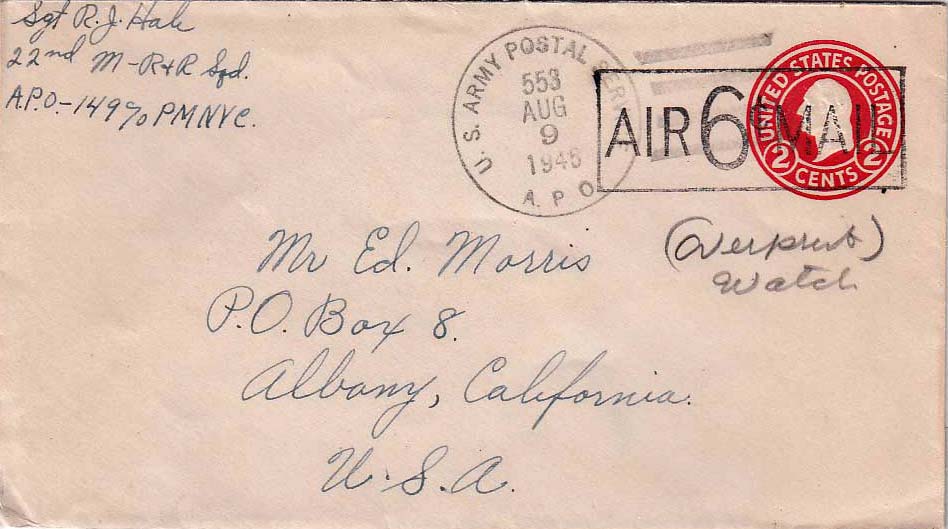 Sgt R. J. Hale
22nd M-R+R Sqd.
A.P.O-149 c/o PM NYC.
U. S. ARMY POSTAL SERV
553
AUG
9
1945
A. P O
AIR 6¢ MAIL
UNITED STATES POSTAGE
2 CENTS 2
Mr Ed. Morris
(Overprint)
Watch
P.O. Box 8.
Albany, California.
U. S. A.